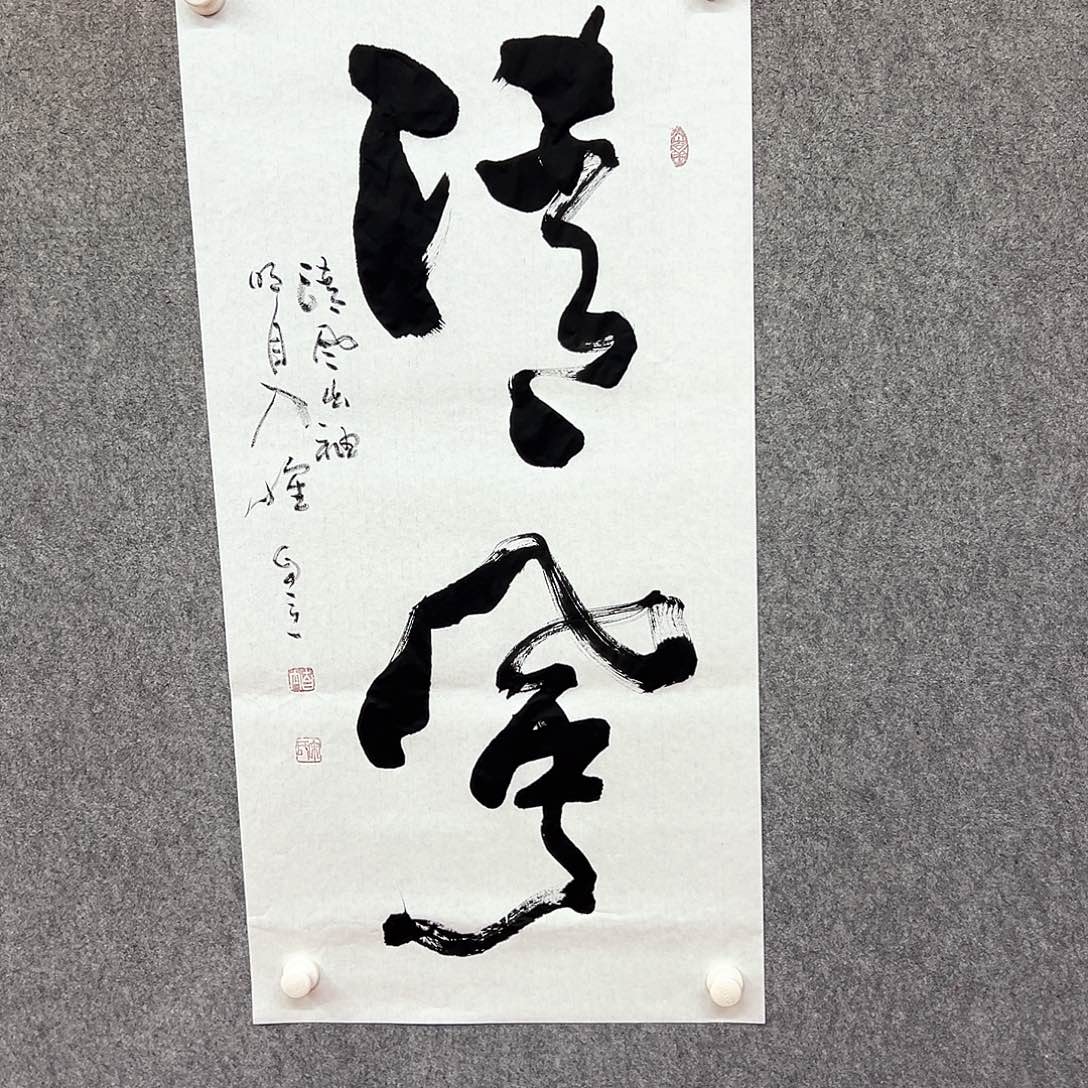 清風
清風出袖
明月入懷